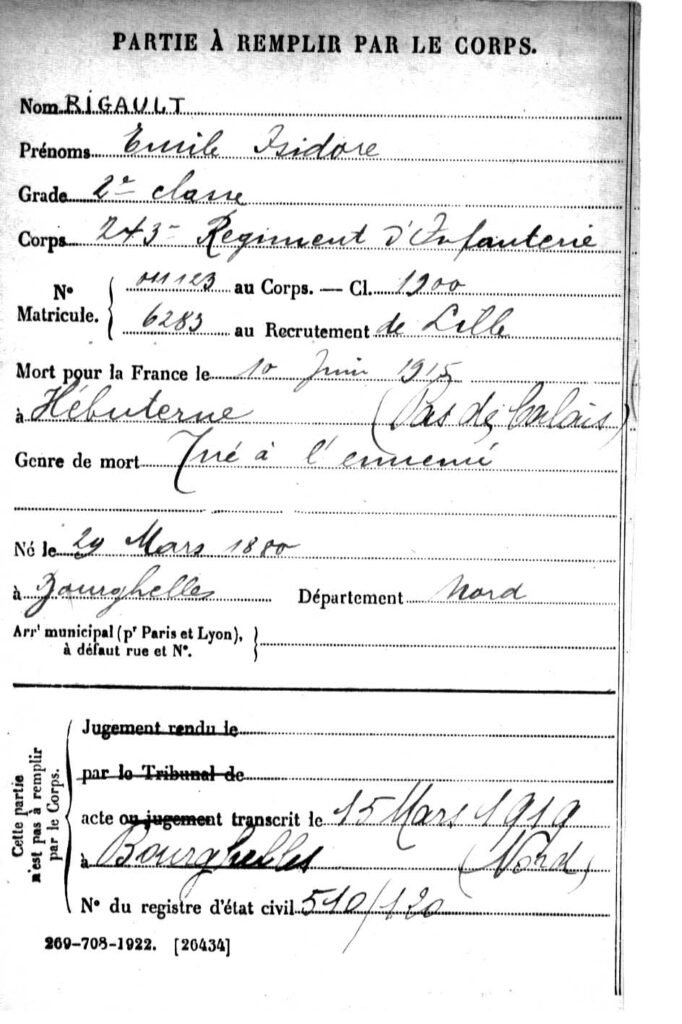 PARTIE À REMPLIR PAR LE CORPS.
Nom RIGAULT
Prénoms Emile Isidore
Grade 2e classe
Corps 243e Régiment d'Infanterie
N° Matricule. { 011123 au Corps. — Cl. 1900
6283 au Recrutement de Lille
Mort pour la France le 10 Juin 1915
à Hébuterne (Pas de Calais)
Genre de mort Tué à l'ennemi
Né le 29 Mars 1880
à Bourghelles Département Nord
Arrt municipal (pr Paris et Lyon),
à défaut rue et N°.
Cette partie n'est pas à remplir par le Corps.
Jugement rendu le
par le Tribunal de
acte ou jugement transcrit le 15 Mars 1919
à Bourghelles (Nord)
N° du registre d'état civil 510/120
269-708-1922. [26434]